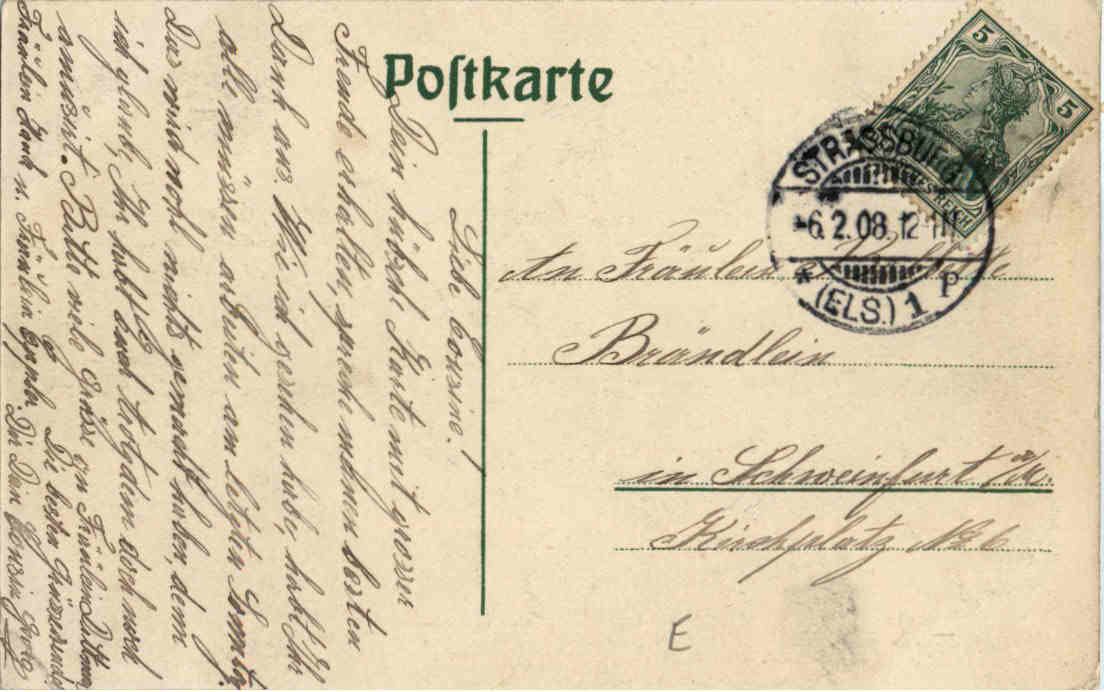 Postkarte
5
5
STRASSBURG
-6.2.08.12-1N
* (ELS.) 1 p
An Fräulein
Brändlein
in Schweinfurt a/M.
Kirchplatz No 6
E
Liebe Cousine!
Dein hübsche Karte mit grosser
Freude erhalten, spreche meinen besten
Dank aus. Wie ich gesehen habe, habt Ihr
alle müssen arbeiten am letzten Sonntag.
Das wird wohl nichts gemacht haben, denn
ich glaub, Ihr habt Euch trotzdem doch noch
amüsirt. Bitte viele Grüsse an Fräulein
Fräulein u. Fräulein Die besten Grüsse
Dir Dein Cousin